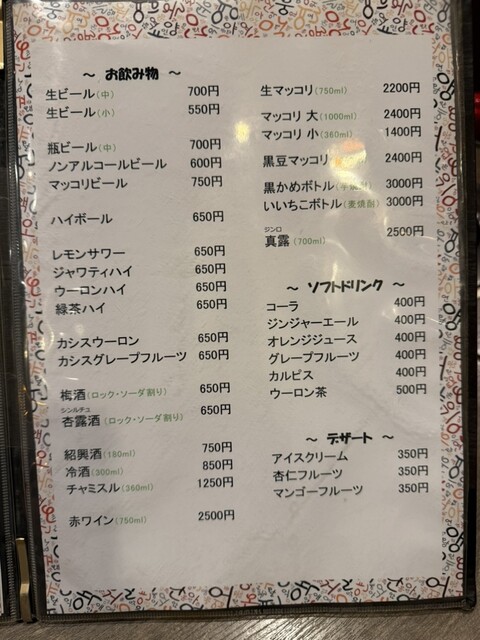 ～ お飲み物 ～
生ビール(中) 700円
生ビール(小) 550円
瓶ビール(中) 700円
ノンアルコールビール 600円
マッコリビール 750円
ハイボール 650円
レモンサワー 650円
ジャワティハイ 650円
ウーロンハイ 650円
緑茶ハイ 650円
カシスウーロン 650円
カシスグレープフルーツ 650円
梅酒(ロック・ソーダ割り) 650円
シンルチュ
杏露酒(ロック・ソーダ割り) 650円
紹興酒(180ml) 750円
冷酒(300ml) 850円
チャミスル(360ml) 1250円
赤ワイン(750ml) 2500円
生マッコリ(750ml) 2200円
マッコリ 大(1000ml) 2400円
マッコリ 小(360ml) 1400円
黒豆マッコリ 2400円
黒かめボトル(芋焼酎) 3000円
いいちこボトル(麦焼酎) 3000円
ジンロ
真露(700ml) 2500円
～ ソフトドリンク ～
コーラ 400円
ジンジャーエール 400円
オレンジジュース 400円
グレープフルーツ 400円
カルピス 400円
ウーロン茶 500円
～ デザート ～
アイスクリーム 350円
杏仁フルーツ 350円
マンゴーフルーツ 350円